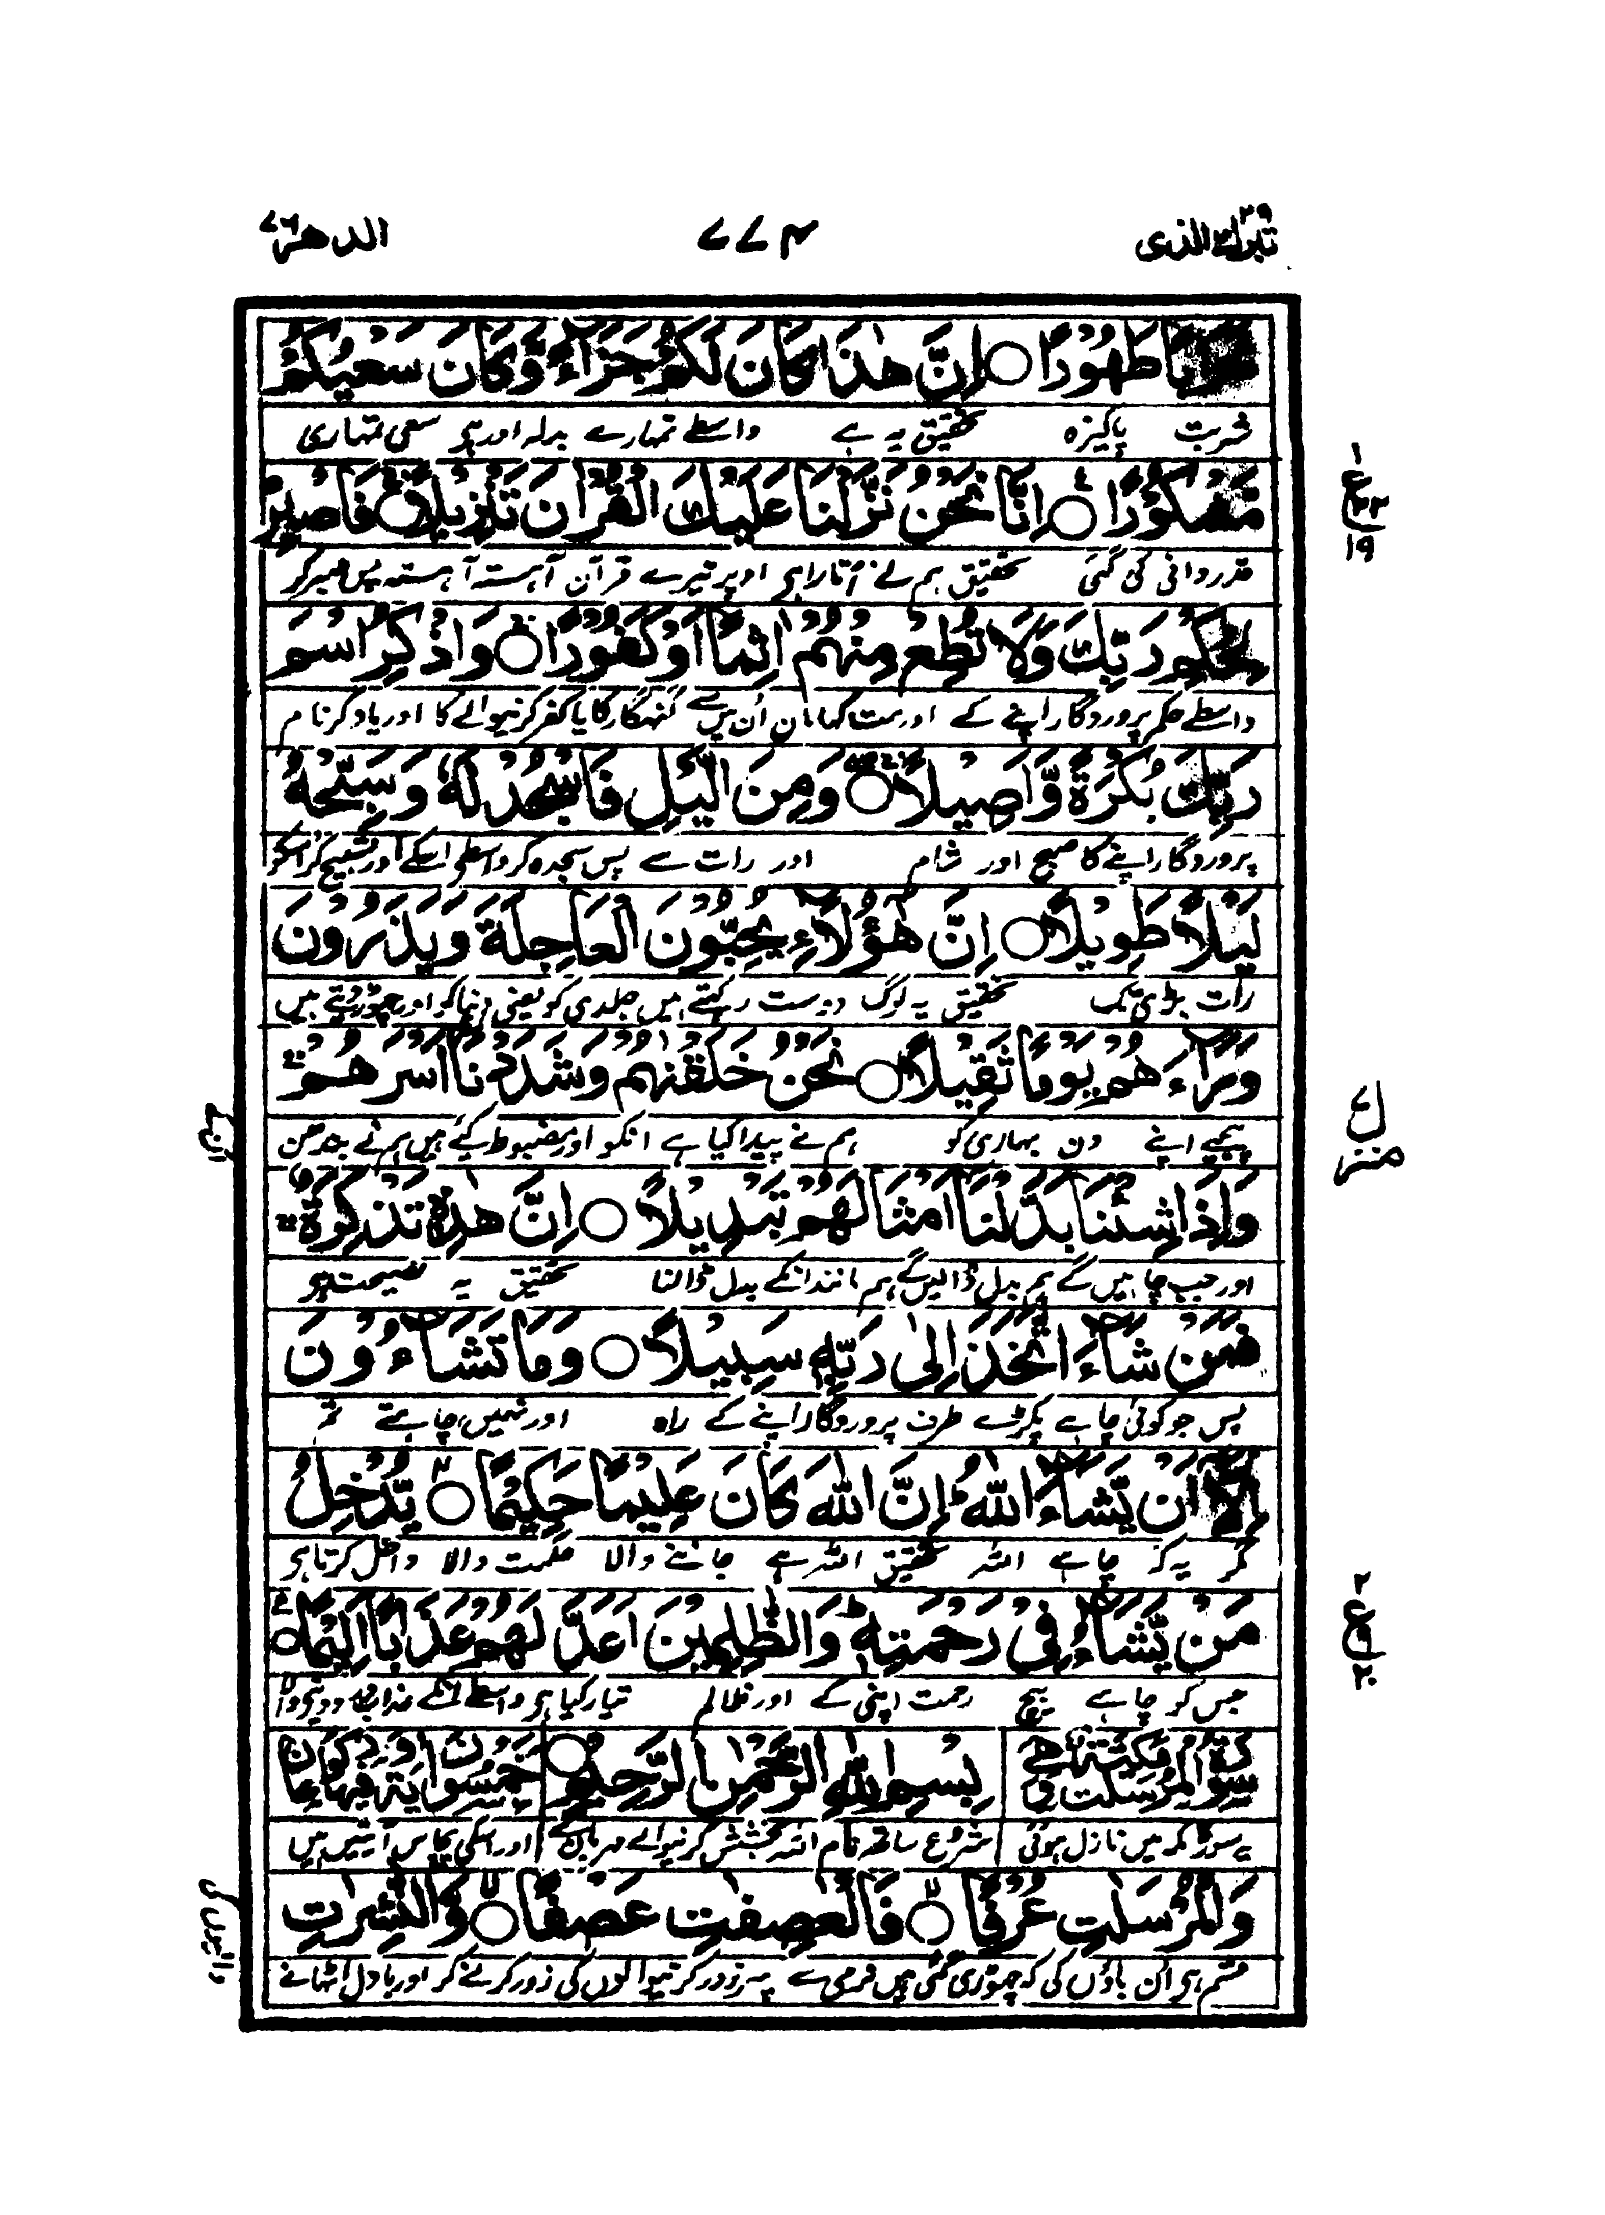 تبٰرك الذی ٢٩
٧٧٤
الدهر ٧٦
شَرَابًا طَهُوْرًا ○ اِنَّ هٰذَا كَانَ لَكُمْ جَزَآءً وَّكَانَ سَعْيُكُمْ
شربت پاکیزہ تحقیق یہ ہے واسطے تمہارے بدلہ اور ہی سعی تمہاری
مَّشْكُوْرًا ○ اِنَّا نَحْنُ نَزَّلْنَا عَلَيْكَ الْقُرْاٰنَ تَنْزِيْلًا ○ فَاصْبِرْ
قدردانی کی گئی تحقیق ہم نے اُتارا ہی اوپر تیرے قرآن آہستہ آہستہ پس صبر کر
لِحُكْمِ رَبِّكَ وَلَا تُطِعْ مِنْهُمْ اٰثِمًا اَوْ كَفُوْرًا ○ وَاذْكُرِ اسْمَ
واسطے حکم پروردگار اپنے کے اور مت کہا مان اُن میں سے گنہگار کا یا کفر کرنیوالے کا اور یاد کر نام
رَبِّكَ بُكْرَةً وَّاَصِيْلًا ○ وَمِنَ الَّيْلِ فَاسْجُدْ لَهٗ وَسَبِّحْهُ
پروردگار اپنے کا صبح اور شام اور رات سے پس سجدہ کر واسطے اسکے اور تسبیح کر اسکو
لَيْلًا طَوِيْلًا ○ اِنَّ هٰٓؤُلَآءِ يُحِبُّوْنَ الْعَاجِلَةَ وَيَذَرُوْنَ
رات بڑی تک تحقیق یہ لوگ دوست رکھتے ہیں جلدی کو یعنی دنیا کو اور چھوڑ دیتے ہیں
وَرَآءَهُمْ يَوْمًا ثَقِيْلًا ○ نَحْنُ خَلَقْنٰهُمْ وَشَدَدْنَآ اَسْرَهُمْ
پیچھے اپنے دن بھاری کو ہم نے پیدا کیا ہے انکو اور مضبوط کیے ہیں ہم نے بندھن
وَاِذَا شِئْنَا بَدَّلْنَآ اَمْثَالَهُمْ تَبْدِيْلًا ○ اِنَّ هٰذِهٖ تَذْكِرَةٌ
اور جب چاہیں گے ہم بدل ڈالیں گے ہم مانند انکے بدل ڈالنا تحقیق یہ نصیحت ہی
فَمَنْ شَآءَ اتَّخَذَ اِلٰى رَبِّهٖ سَبِيْلًا ○ وَمَا تَشَآءُوْنَ
پس جو کوئی چاہے پکڑے طرف پروردگار اپنے کے راہ اور نہیں چاہتے تم
اِلَّآ اَنْ يَّشَآءَ اللّٰهُ اِنَّ اللّٰهَ كَانَ عَلِيْمًا حَكِيْمًا ○ يُّدْخِلُ
مگر یہ کہ چاہے اللہ تحقیق اللہ ہے جاننے والا حکمت والا داخل کرتا ہی
مَنْ يَّشَآءُ فِيْ رَحْمَتِهٖ وَالظّٰلِمِيْنَ اَعَدَّ لَهُمْ عَذَابًا اَلِيْمًا ○
جس کو چاہے بیچ رحمت اپنی کے اور ظالم تیار کیا ہی واسطے انکے عذاب درد دینے والا
سورة المرسلت مكية وهي بِسْمِ اللّٰهِ الرَّحْمٰنِ الرَّحِيْمِ ○ خمسون اية وفيها ركوعان
یہ سورۃ مکہ میں نازل ہوئی شروع ساتھ نام اللہ بخشش کرنیوالے مہربان کے اور اسکی پچاس آیتیں ہیں
وَالْمُرْسَلٰتِ عُرْفًا ○ فَالْعٰصِفٰتِ عَصْفًا ○ وَّالنّٰشِرٰتِ
قسم ہی اُن باؤں کی کہ چھوڑی گئی ہیں نرمی سے پھر زور کرنیوالیوں کی زور کرنے کر اور بادل اُٹھانے
١
ع
٢٣
١٩
منزل ٧
٢
ع
٩
٢٠